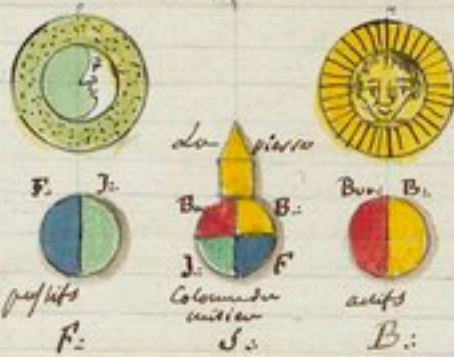 La pierre
F∴ J∴
B. B∴
Bo.. B∴
J∴ F
passifs
Colonne du
milieu
actifs
F∴ S∴ B∴